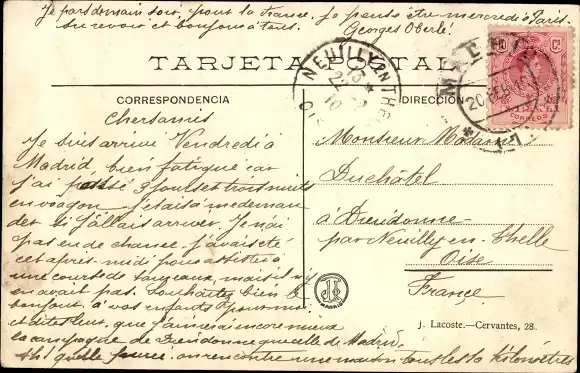 Je pars demain soir, pour la France. Je pense être mercredi à Paris.
Au revoir et bonjour à tous.
Georges Oberlé.
TARJETA POSTAL
NEUILLY EN THE
22
10
OISE
MADRID
20 FEB
10 Cs
ESPAÑA
CORREOS
CORRESPONDENCIA
DIRECCIÓN
Chers amis
Je suis arrivé Vendredi à
Madrid, bien fatigué car
j'ai passé 3 jours et trois nuits
en wagon. J'étais à me deman
der si j'allais arriver. Je n'ai
pas eu de chance. J'avais été
cet après-midi pour assister à
une course de taureaux, mais il n'y
en avait pas. Souhaitez bien le
bonjour à vos enfants pour moi
et dites leur, que j'aimerais encore mieux
la campagne de Dieudonne que celle de Madrid.
Ah! quelle on rencontre une maison tous les 10 kilomètres
Monsieur Madame
Duchâtel
à Dieudonne
par Neuilly en Thelle
Oise
France
MADRID
J. Lacoste.—Cervantes, 28.